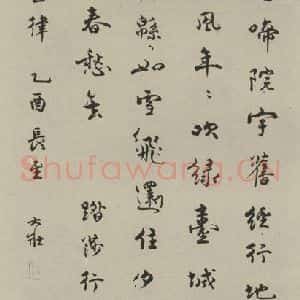 啼院宇舊經行地
風年〻吹綠臺城
緜〻如雪飛還住
春愁 踏莎行
律 乙酉長至 大壯
Shufawang.Cn